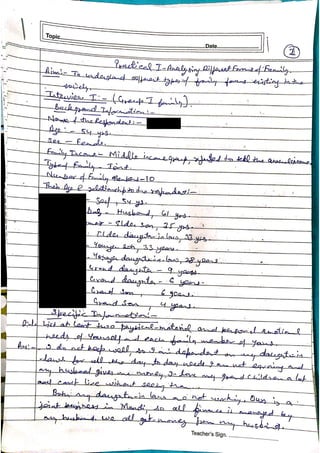 Topic
Date
1
Practical I - Analysing Different Forms of Family.
Aim:- To understand different types of family forms existing in the
society.
Interview I :- (Group I family).
Background Information:-
Name of the Respondent:-
Age :- 54 yrs.
Sex - Female.
Family Income - Middle income group, refused to tell the annual income.
Type of Family - Joint.
Number of Family Members - 10
Their Age & relationship to the respondent:-
- Self, 54 yrs.
- Husband, 61 yrs.
- Elder son, 35 yrs.
- Elder daughter in law, 33 yrs.
- Younger son, 33 years.
- Younger daughter in law, 28 years
Grand daughter - 9 years.
Grand daughter - 6 years.
Grand son, 6 years.
Grand son 4 years.
Specific Information:-
List at least two physical-material and personal emotional
needs of yourself and each family member of yours.
Ans:- I do not keep well, so I am dependent on my daughter in
laws for all the day to day needs. I am not earning and
my husband gives me money. I love my grand children a lot
and can't live without seeing them.
Both my daughter in laws are not working. Ours is a
joint business in Mandi, so all finance is managed by
my husband we all get money from my husband.
Teacher's Sign